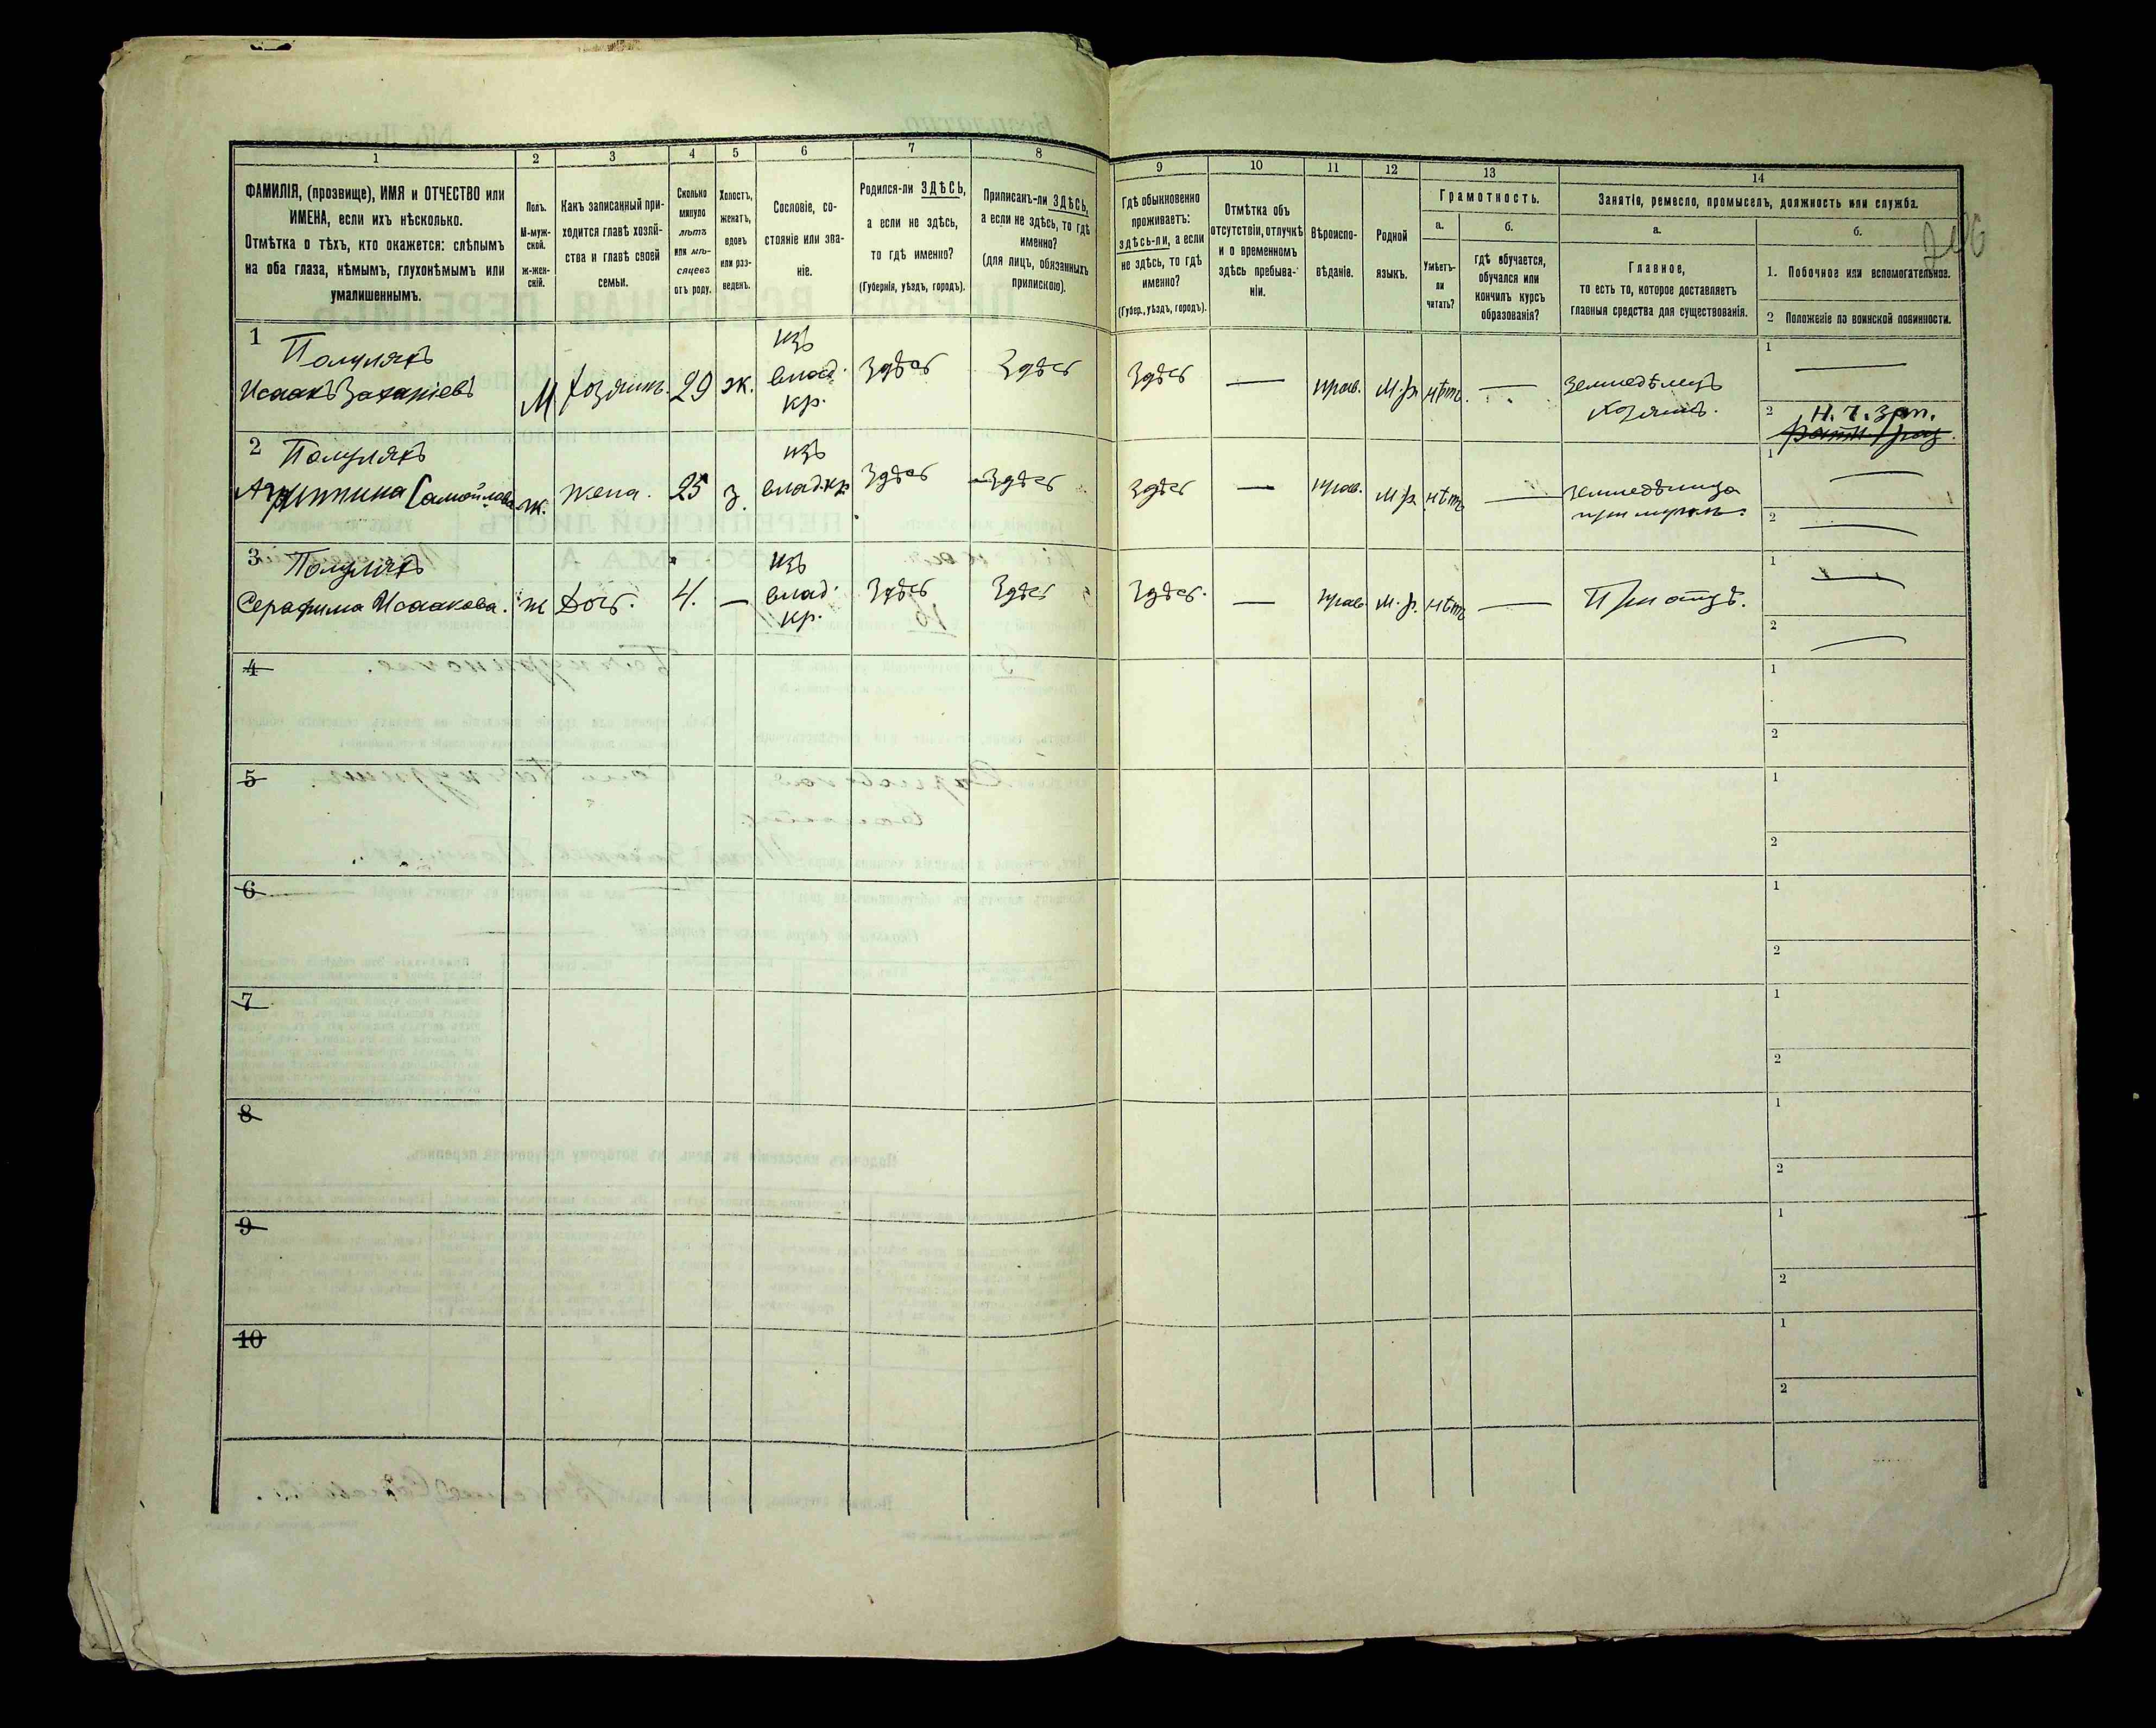 1
2
3
4
5
6
7
8
9
10
11
12
13
14
ФАМИЛІЯ, (прозвище), ИМЯ и ОТЧЕСТВО или
ИМЕНА, если ихъ нѣсколько.
Отмѣтка о тѣхъ, кто окажется: слѣпымъ
на оба глаза, нѣмымъ, глухонѣмымъ или
умалишеннымъ.
Полъ.
М-муж-
ской.
ж-жен-
скій.
Какъ записанный при-
ходится главѣ хозяй-
ства и главѣ своей
семьи.
Сколько
минуло
лѣтъ
или мѣ-
сяцевъ
отъ роду.
Холостъ,
женатъ,
вдовъ
или раз-
веденъ.
Сословіе, со-
стояніе или зва-
ніе.
Родился-ли ЗДѢСЬ,
а если не здѣсь,
то гдѣ именно?
(Губернія, уѣздъ, городъ).
Приписанъ-ли ЗДѢСЬ,
а если не здѣсь, то гдѣ
именно?
(для лицъ, обязанныхъ
припискою).
Гдѣ обыкновенно
проживаетъ:
здѣсь-ли, а если
не здѣсь, то гдѣ
именно?
(Губер., уѣздъ, городъ).
Отмѣтка объ
отсутствіи, отлучкѣ
и о временномъ
здѣсь пребыва-
ніи.
Вѣроиспо-
вѣданіе.
Родной
языкъ.
Грамотность.
а.
Умѣетъ-
ли
читать?
б.
гдѣ обучается,
обучался или
кончилъ курсъ
образованія?
Занятіе, ремесло, промыселъ, должность или служба.
а.
Главное,
то есть то, которое доставляетъ
главныя средства для существованія.
б.
1. Побочное или вспомогательное.
2 Положеніе по воинской повинности.
1
Полуляхъ
Исаакъ Захаріевъ
М
хозяинъ.
29
ж.
изъ
влад.
кр.
Здѣсь
Здѣсь
Здѣсь
—
прав.
М.р.
нѣтъ.
—
Земледѣлецъ
хозяинъ.
1
—
2
2
Полуляхъ
Агриппина Самойлова
ж.
жена.
25
з.
изъ
влад.кр.
Здѣсь
Здѣсь
Здѣсь
—
прав.
М.р.
нѣтъ
—
1
—
2
—
3
Полуляхъ
Серафима Исаакова.
ж
Дочь.
4.
—
изъ
влад.
кр.
Здѣсь
Здѣсь
Здѣсь.
—
прав.
М.р.
нѣтъ
—
При отцѣ.
1
—
2
—
4
1
2
5
1
2
6
1
2
7
1
2
8
1
2
9
1
2
10
1
2